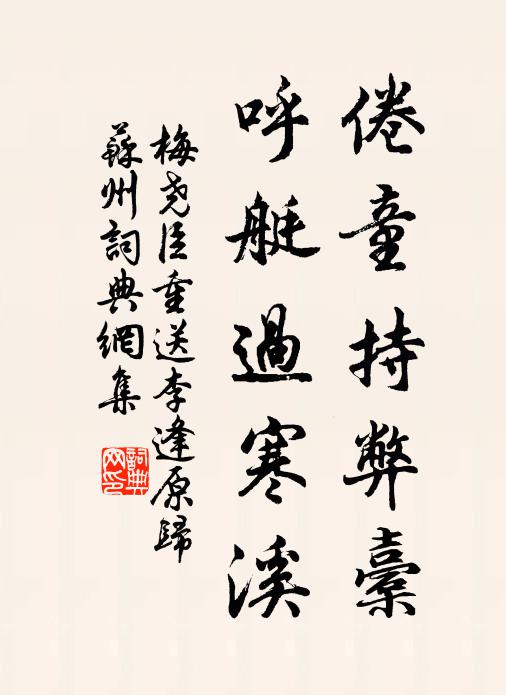 倦童持弊橐
呼艇過寒溪
梅堯臣重送李逢原歸
蘇州詞典網集
詞典網印